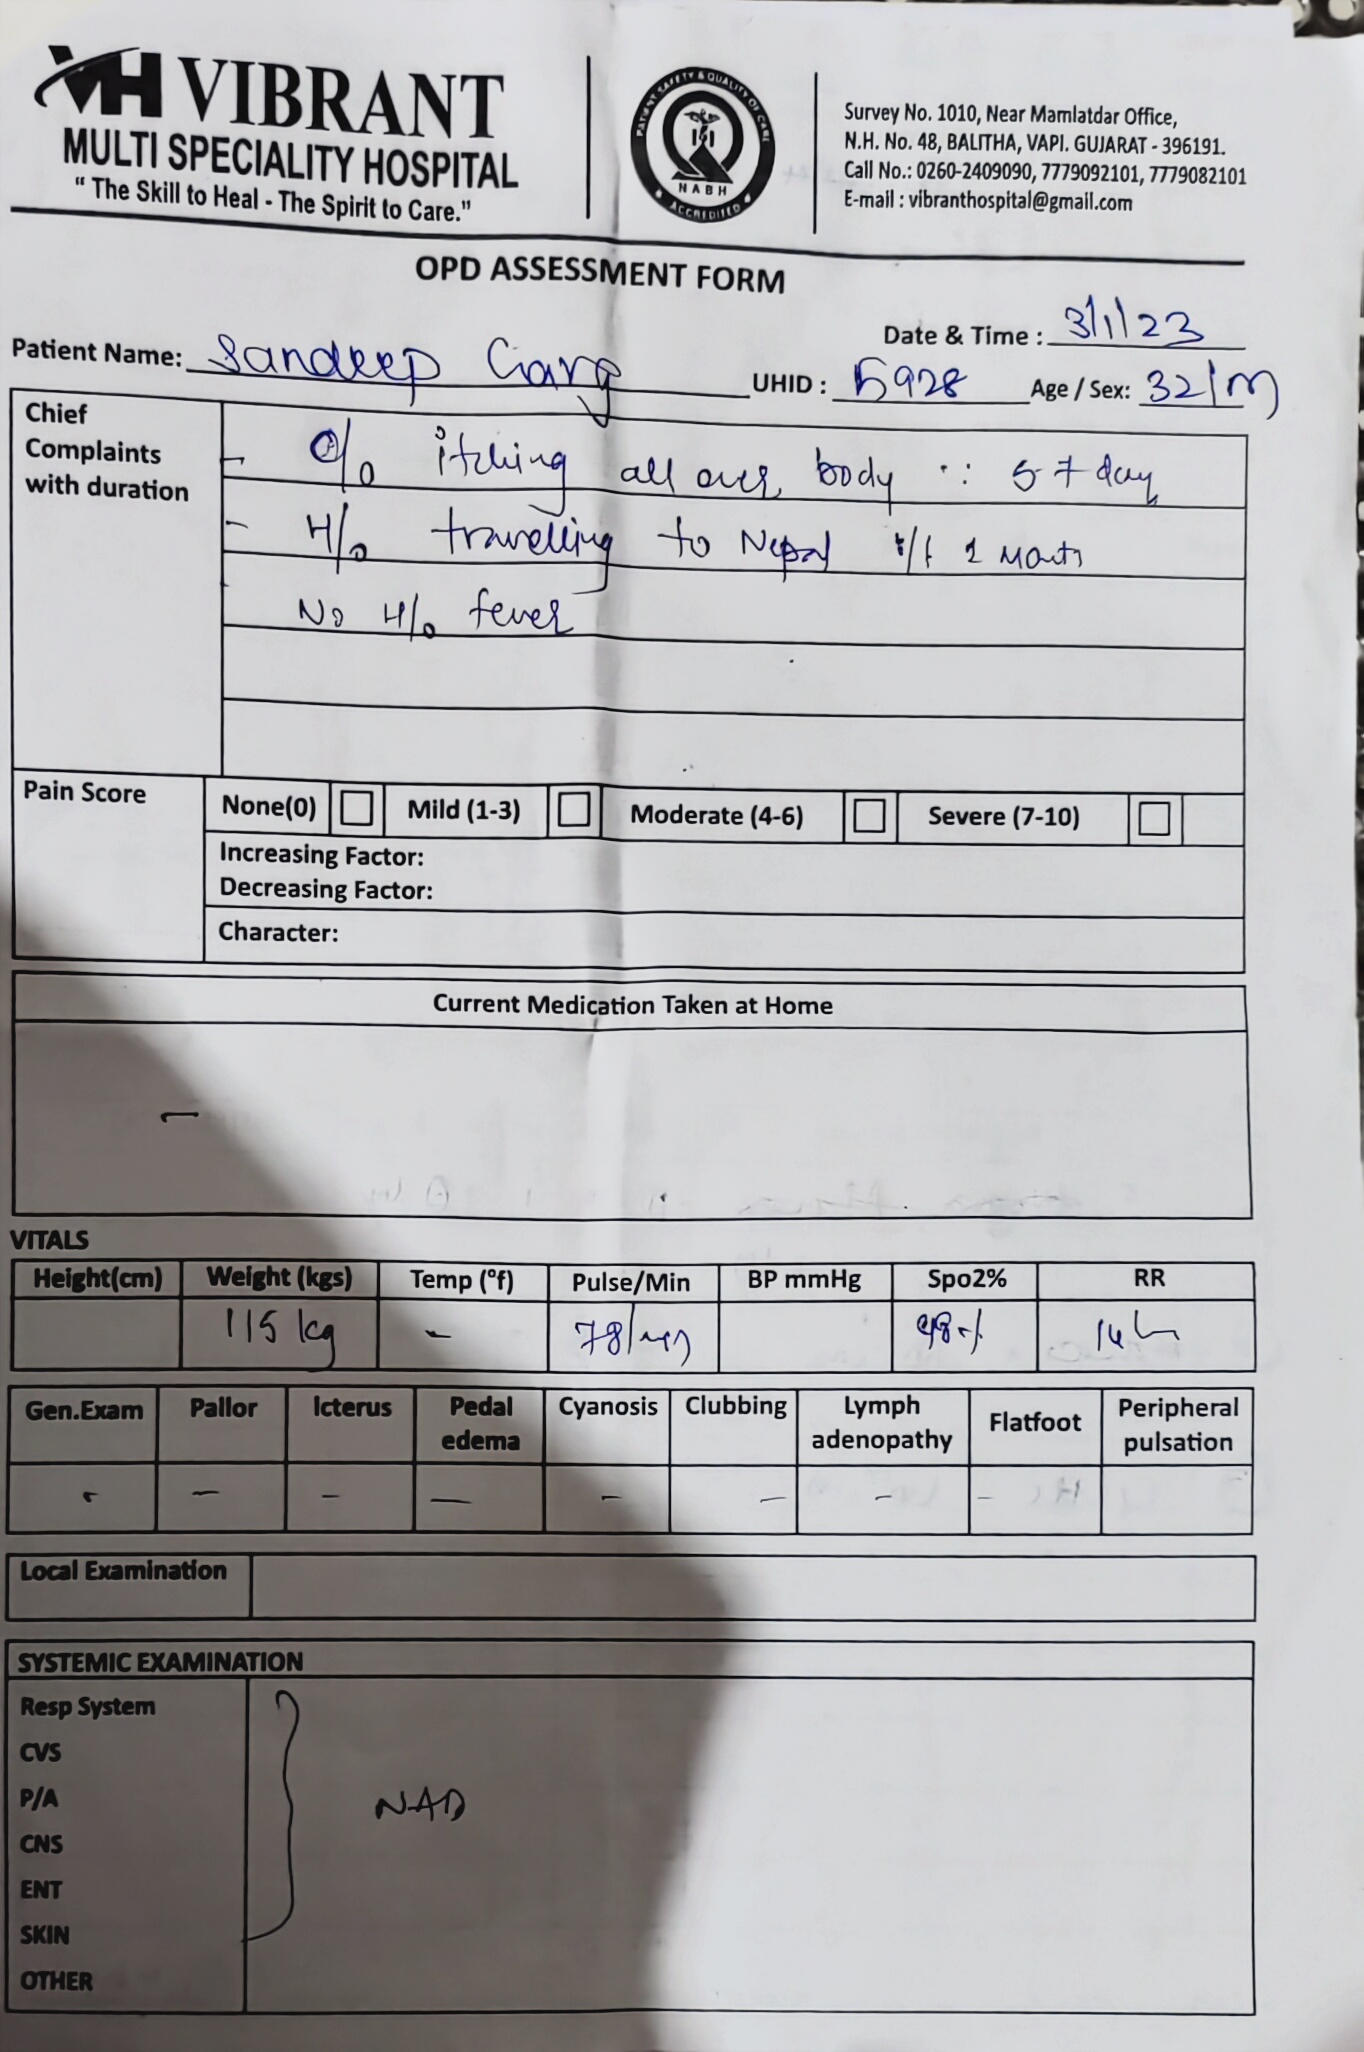 VH VIBRANT
MULTI SPECIALITY HOSPITAL
" The Skill to Heal - The Spirit to Care."
PATIENT SAFETY & QUALITY OF CARE
NABH
ACCREDITED
Survey No. 1010, Near Mamlatdar Office,
N.H. No. 48, BALITHA, VAPI. GUJARAT - 396191.
Call No.: 0260-2409090, 7779092101, 7779082101
E-mail : vibranthospital@gmail.com
OPD ASSESSMENT FORM
Date & Time : 3/1/23
Patient Name: Sandeep Garg UHID : 5928 Age / Sex: 32/m
Chief Complaints with duration
- C/o itching all over body 5 7 day
- H/o travelling to Nepal 1 Month
No H/o fever
Pain Score None(0) Mild (1-3) Moderate (4-6) Severe (7-10)
Increasing Factor:
Decreasing Factor:
Character:
Current Medication Taken at Home
-
VITALS
Height(cm) Weight (kgs) Temp (°f) Pulse/Min BP mmHg Spo2% RR
115 kg - 78/min 98 %
Gen.Exam Pallor Icterus Pedal edema Cyanosis Clubbing Lymph adenopathy Flatfoot Peripheral pulsation
- - - - - - - -
Local Examination
SYSTEMIC EXAMINATION
Resp System
CVS
P/A NAD
CNS
ENT
SKIN
OTHER